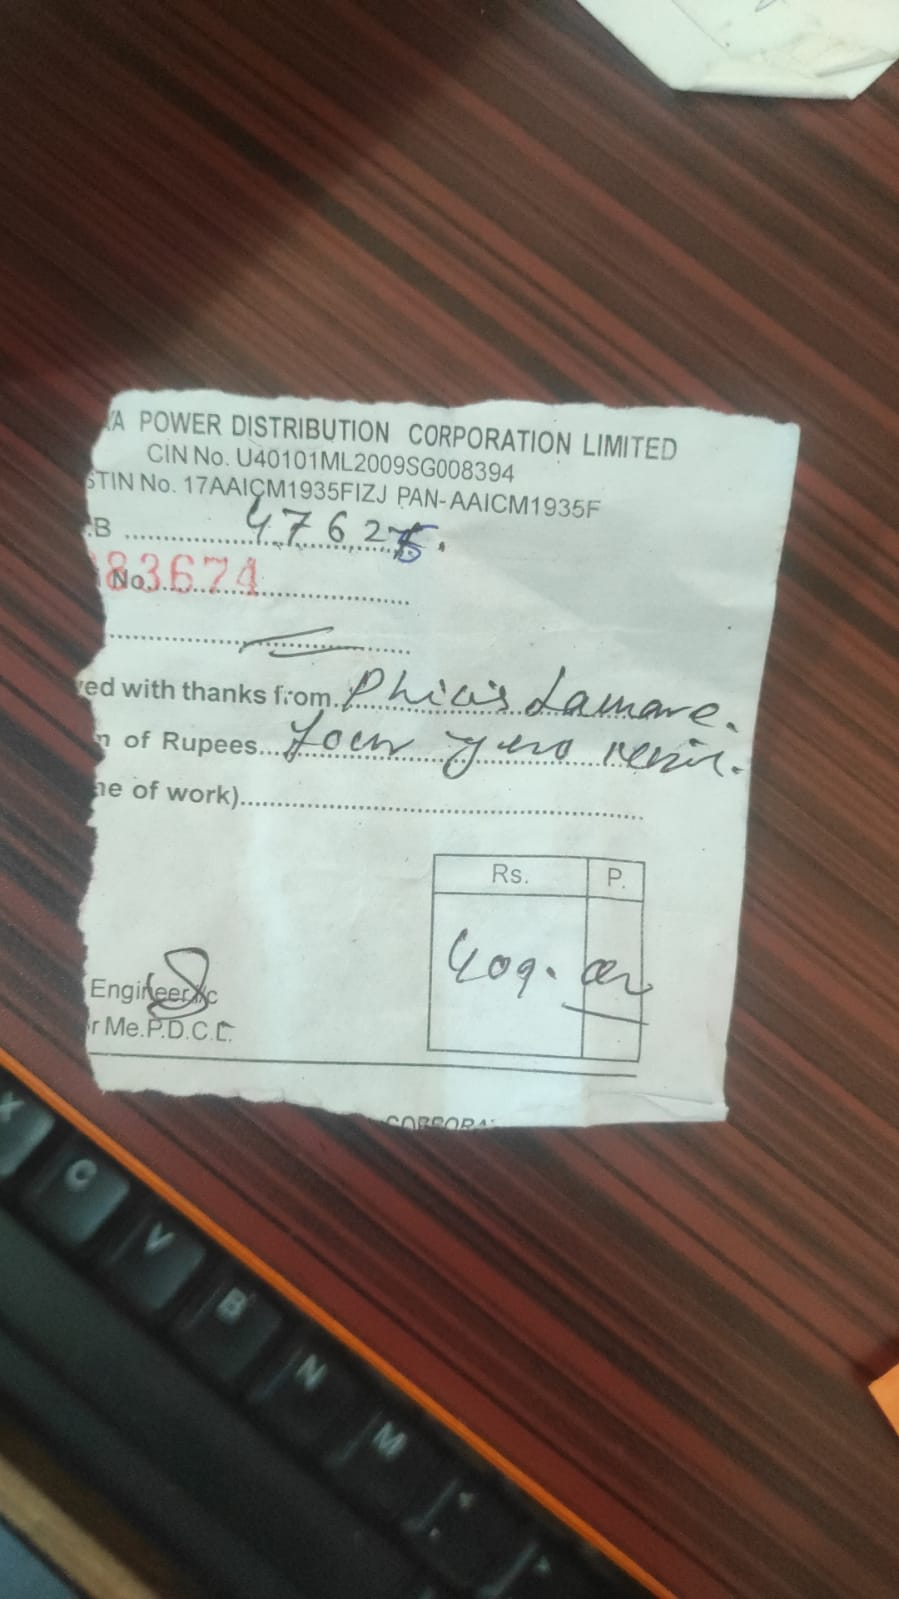 YA POWER DISTRIBUTION CORPORATION LIMITED
CIN No. U40101ML2009SG008394
STIN No. 17AAICM1935FIZJ PAN-AAICM1935F
.B 47625.
83674
No.
ed with thanks from. Phicis Lamare.
of Rupees... Four zero nine.
ne of work)
Rs. P.
409. 00
Engineer i/c
r Me.P.D.C.L.
CORPORA
X C V B N M